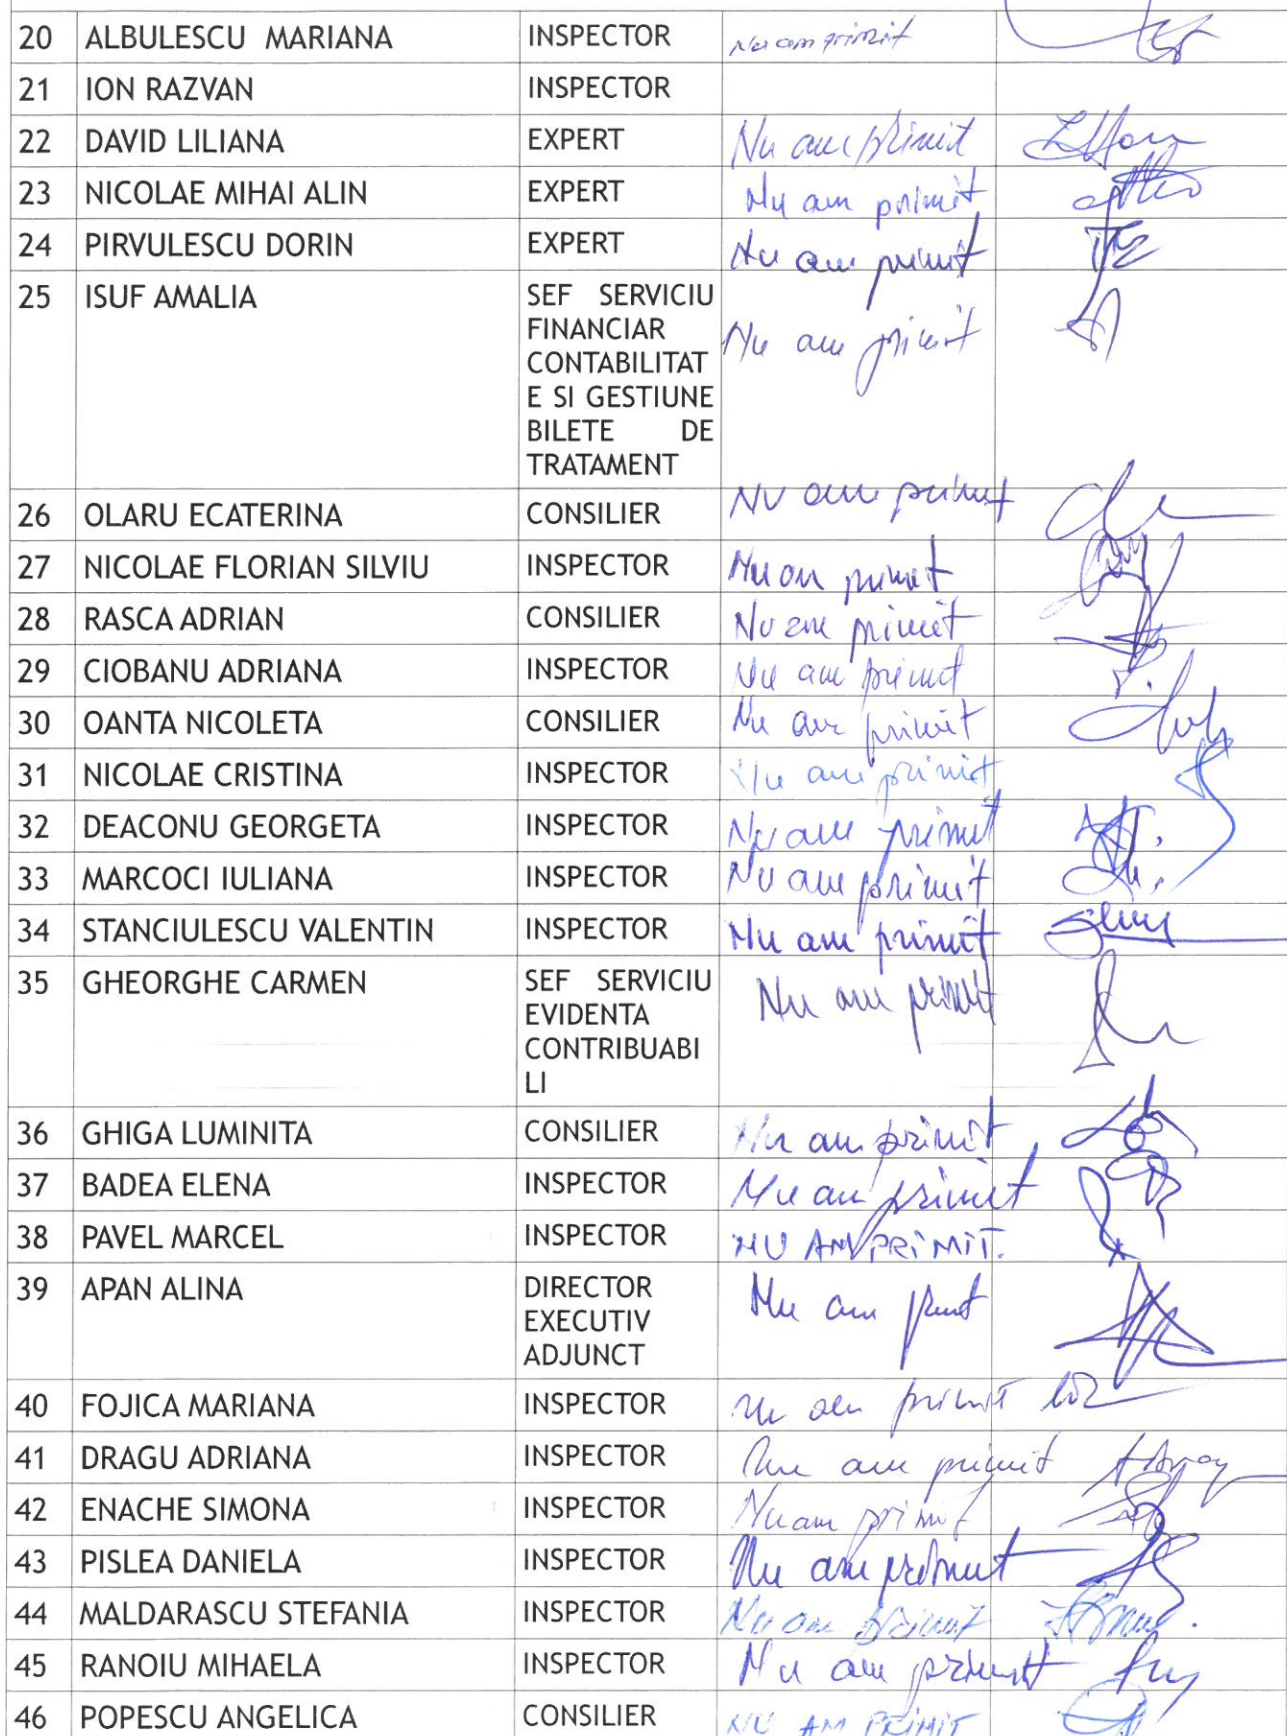 20 ALBULESCU MARIANA INSPECTOR Nu am primit
21 ION RAZVAN INSPECTOR
22 DAVID LILIANA EXPERT Nu am primit
23 NICOLAE MIHAI ALIN EXPERT Nu am primit
24 PIRVULESCU DORIN EXPERT Nu am primit
25 ISUF AMALIA SEF SERVICIU
FINANCIAR
CONTABILITAT
E SI GESTIUNE
BILETE DE
TRATAMENT
Nu am primit
26 OLARU ECATERINA CONSILIER NU am primit
27 NICOLAE FLORIAN SILVIU INSPECTOR Nu am primit
28 RASCA ADRIAN CONSILIER Nu am primit
29 CIOBANU ADRIANA INSPECTOR Nu am primit
30 OANTA NICOLETA CONSILIER Nu am primit
31 NICOLAE CRISTINA INSPECTOR Nu am primit
32 DEACONU GEORGETA INSPECTOR Nu am primit
33 MARCOCI IULIANA INSPECTOR Nu am primit
34 STANCIULESCU VALENTIN INSPECTOR Nu am primit
35 GHEORGHE CARMEN SEF SERVICIU
EVIDENTA
CONTRIBUABI
LI
Nu am primit
36 GHIGA LUMINITA CONSILIER Nu am primit
37 BADEA ELENA INSPECTOR Nu am primit
38 PAVEL MARCEL INSPECTOR NU AM PRIMIT.
39 APAN ALINA DIRECTOR
EXECUTIV
ADJUNCT
Nu am
40 FOJICA MARIANA INSPECTOR Nu am primit
41 DRAGU ADRIANA INSPECTOR Nu am primit
42 ENACHE SIMONA INSPECTOR Nu am primit
43 PISLEA DANIELA INSPECTOR Nu am primit
44 MALDARASCU STEFANIA INSPECTOR Nu am primit
45 RANOIU MIHAELA INSPECTOR Nu am primit
46 POPESCU ANGELICA CONSILIER NU AM PRIMIT